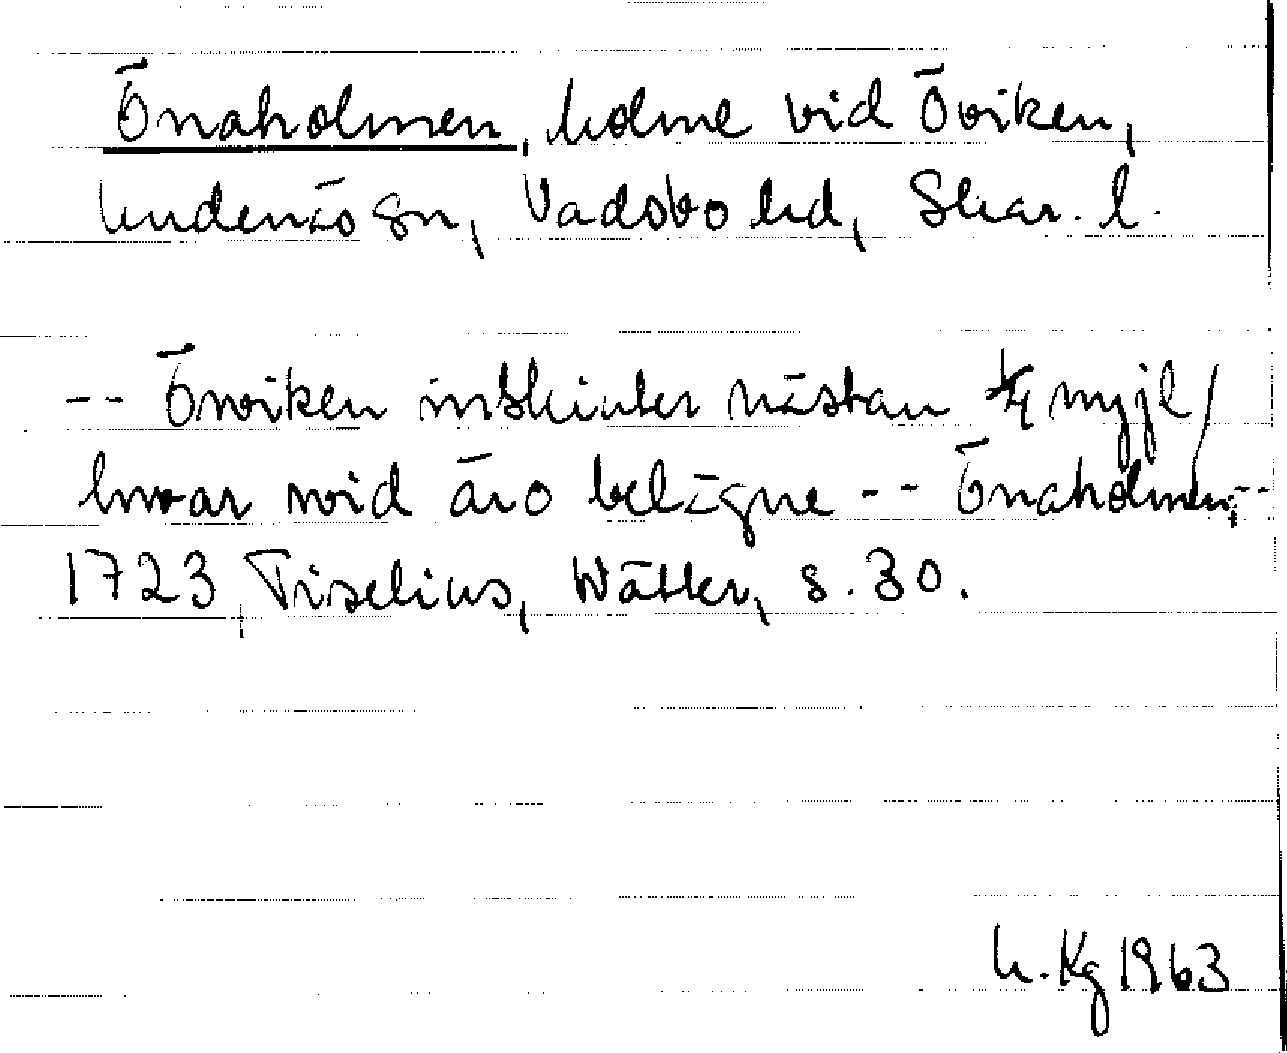 Önaholmen, holme vid Öviken,
Undenäs sn, Vadsbo hd, Skar. l.
-- Önwiken inskiuter nästan 1/4 myjl/
hwar wid äro belägne -- Önaholmen, --
1723 Tiselius, Wätter, s. 30.
h. Kg 1963